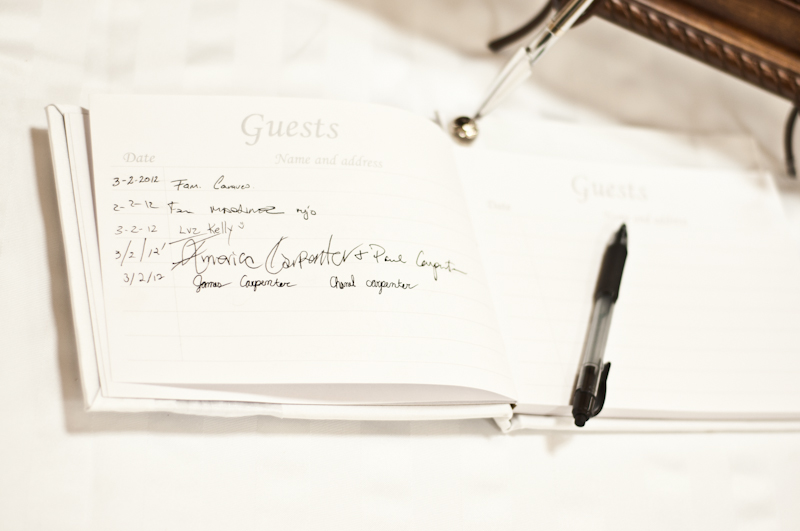 Guests
Date Name and address
3-2-2012 Fam.
2-2-12 Fam
3-2-12 Luz Kelly
3/2/12 America Carpenter & Paul Carpenter
3/2/12 James Carpenter Chanel carpenter
Guests
Date Name and address